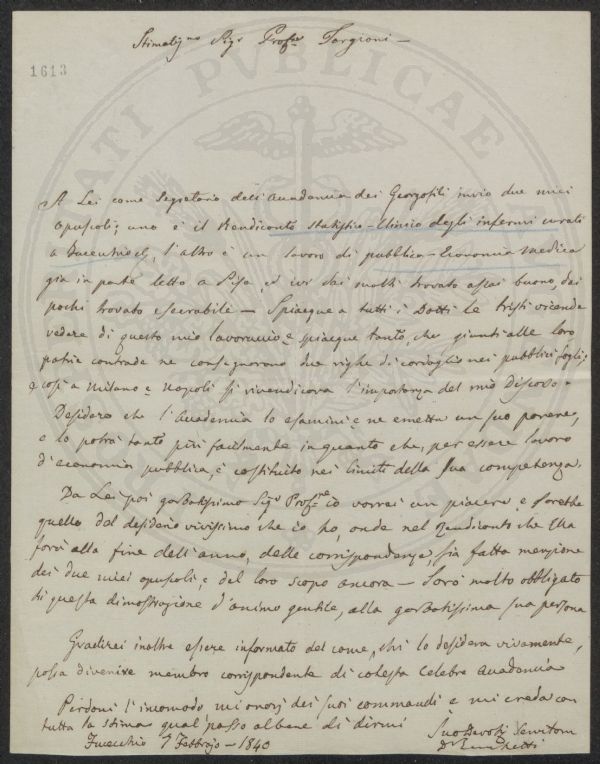 Stimatigmo Sigr Profre Targioni —
1613
A Lei come Segretario dell'Accademia dei Georgofili invio due miei
opuscoli; uno è il Rendiconto statistico-clinico degli infermi curati
a Fucecchio, l'altro è un lavoro di pubblica-Economia medica
già in parte letto a Pisa, ed ivi dai molti trovato assai buono, dai
pochi trovato esecrabile — Spiacque a tutti i Dotti le tristi vicende
vedere di questo mio lavoruccio, e spiacque tanto, che giunti alle loro
patrie contrade ne consegnorono due righe di cordoglio nei pubblici fogli;
e così a Milano e Napoli si rivendicava l'importanza del mio Discorso -
Desidero che l'Accademia lo esamini e ne emetta un suo parere,
e lo potrà tanto più facilmente in quanto che, per essere lavoro
d'economia pubblica, è costituito nei limiti della sua competenza.
Da Lei poi garbatissimo Sigr Profre io vorrei un piacere e sarebbe
quello del desiderio vivissimo che io ho, onde nel Rendiconto che Ella
farà alla fine dell'anno, delle corrispondenze, sia fatta menzione
dei due miei opuscoli, e del loro scopo ancora — Sarò molto obbligato
di questa dimostrazione d'animo gentile, alla garbatissima sua persona
Gradirei inoltre essere informato del come, chi lo desidera vivamente,
possa divenire membro corrispondente di cotesta celebre Accademia
Perdoni l'incomodo mi onori dei suoi commandi e mi creda con
tutta la stima qual passo al bene di dirmi
Fucecchio 7 Febbrajo - 1840
Suo Devoti Servitore
Dr